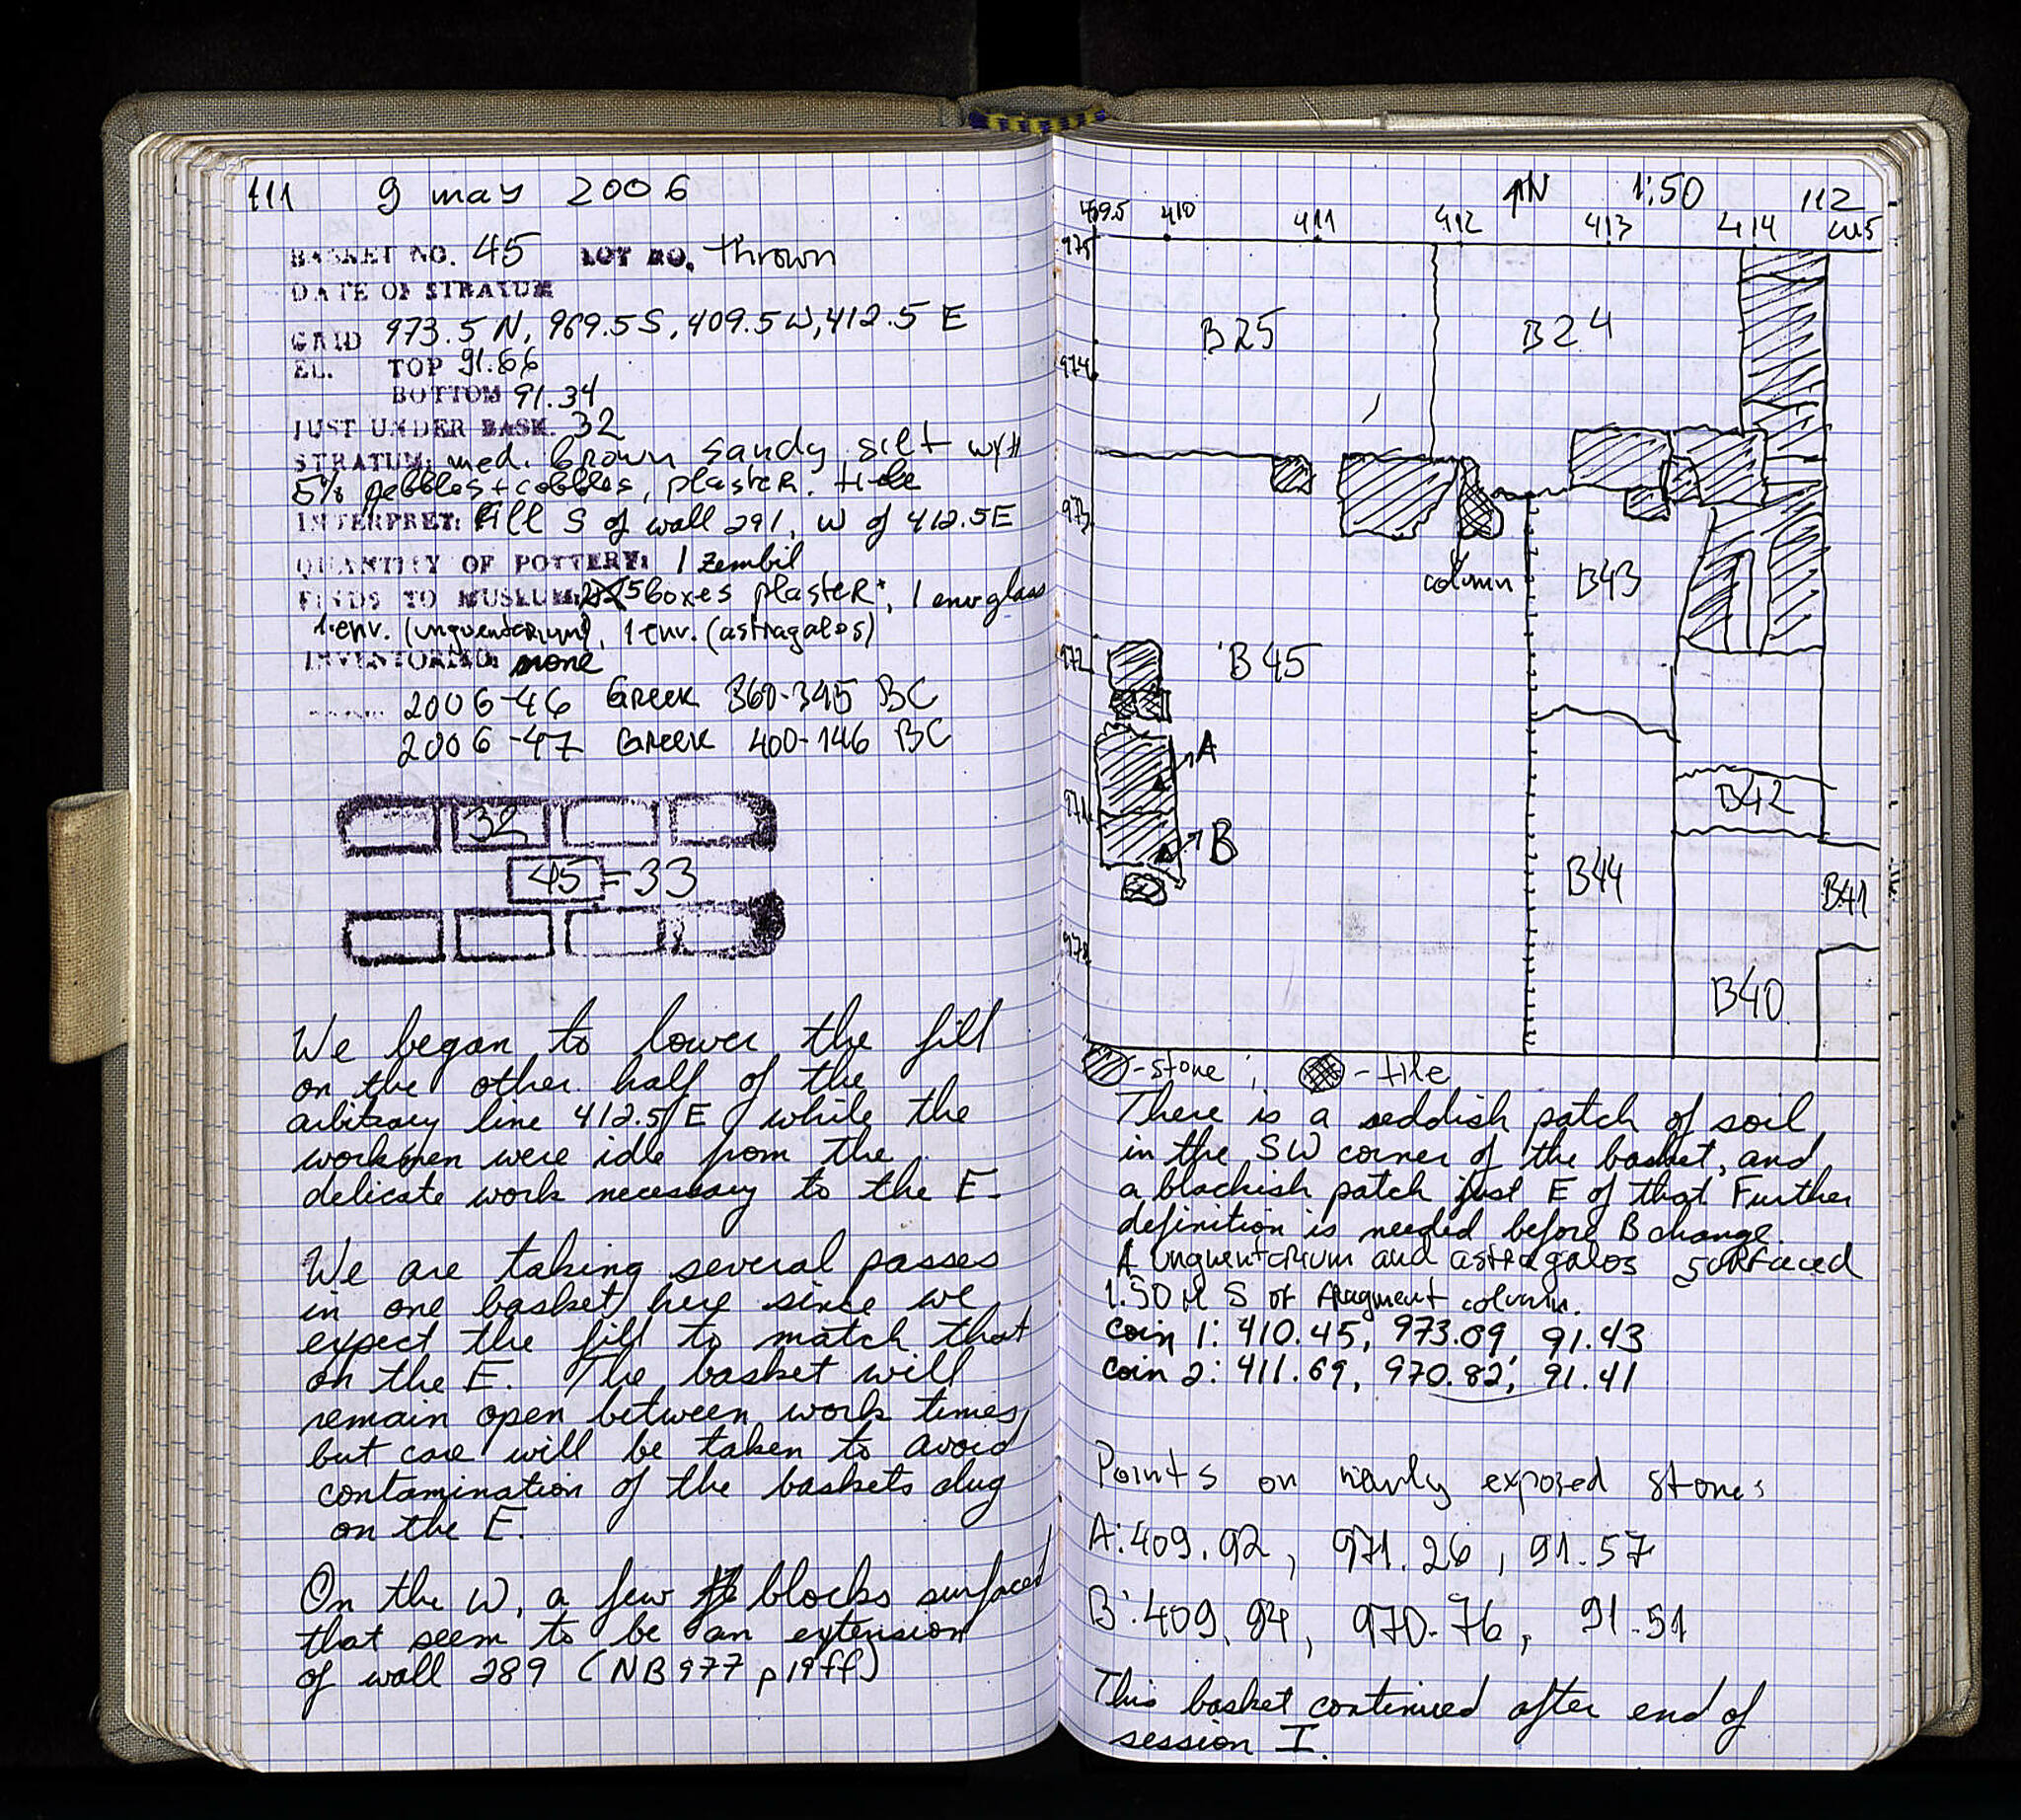 111 9 may 2006
BASKET NO. 45 LOT NO. thrown
DATE OF STRATUM
GRID 973.5 N, 969.5 S, 409.5 W, 412.5 E
EL. TOP 91.66
BOTTOM 91.34
JUST UNDER BASK. 32
STRATUM: med. brown sandy silt w/
5% pebbles + cobbles, plaster, tile
INTERPRET: Fill S of wall 291, W of 412.5 E
QUANTITY OF POTTERY: 1 zembil
FINDS TO MUSEUM: 5 boxes plaster, 1 env glass
1 env. (unguentarium), 1 env. (astragalos)
INVENTORIED: none
2006-46 Greek 360-345 BC
2006-47 Greek 400-146 BC
32
45 = 33
We began to lower the fill
on the other half of the
arbitrary line 412.5 E while the
workmen were idle from the
delicate work necessary to the E.
We are taking several passes
in one basket here since we
expect the fill to match that
on the E. The basket will
remain open between work times,
but care will be taken to avoid
contamination of the baskets dug
on the E.
On the W, a few blocks surfaced
that seem to be an extension
of wall 289 (NB 977 p 19ff)
N 1:50 112
409.5 410 411 412 413 414
975
B25 B24
974
973
column B43
972
B45
A
971
B42
B
B44
B41
970
B40
- stone ; - tile
There is a reddish patch of soil
in the SW corner of the basket, and
a blackish patch just E of that. Further
definition is needed before B change.
A unguentarium and astragalos surfaced
1.50 M S of fragment column.
coin 1: 410.45, 973.09, 91.43
coin 2: 411.69, 970.82, 91.41
Points on newly exposed stones
A: 409.92, 971.26, 91.57
B: 409.94, 970.76, 91.51
This basket continued after end of
session I.